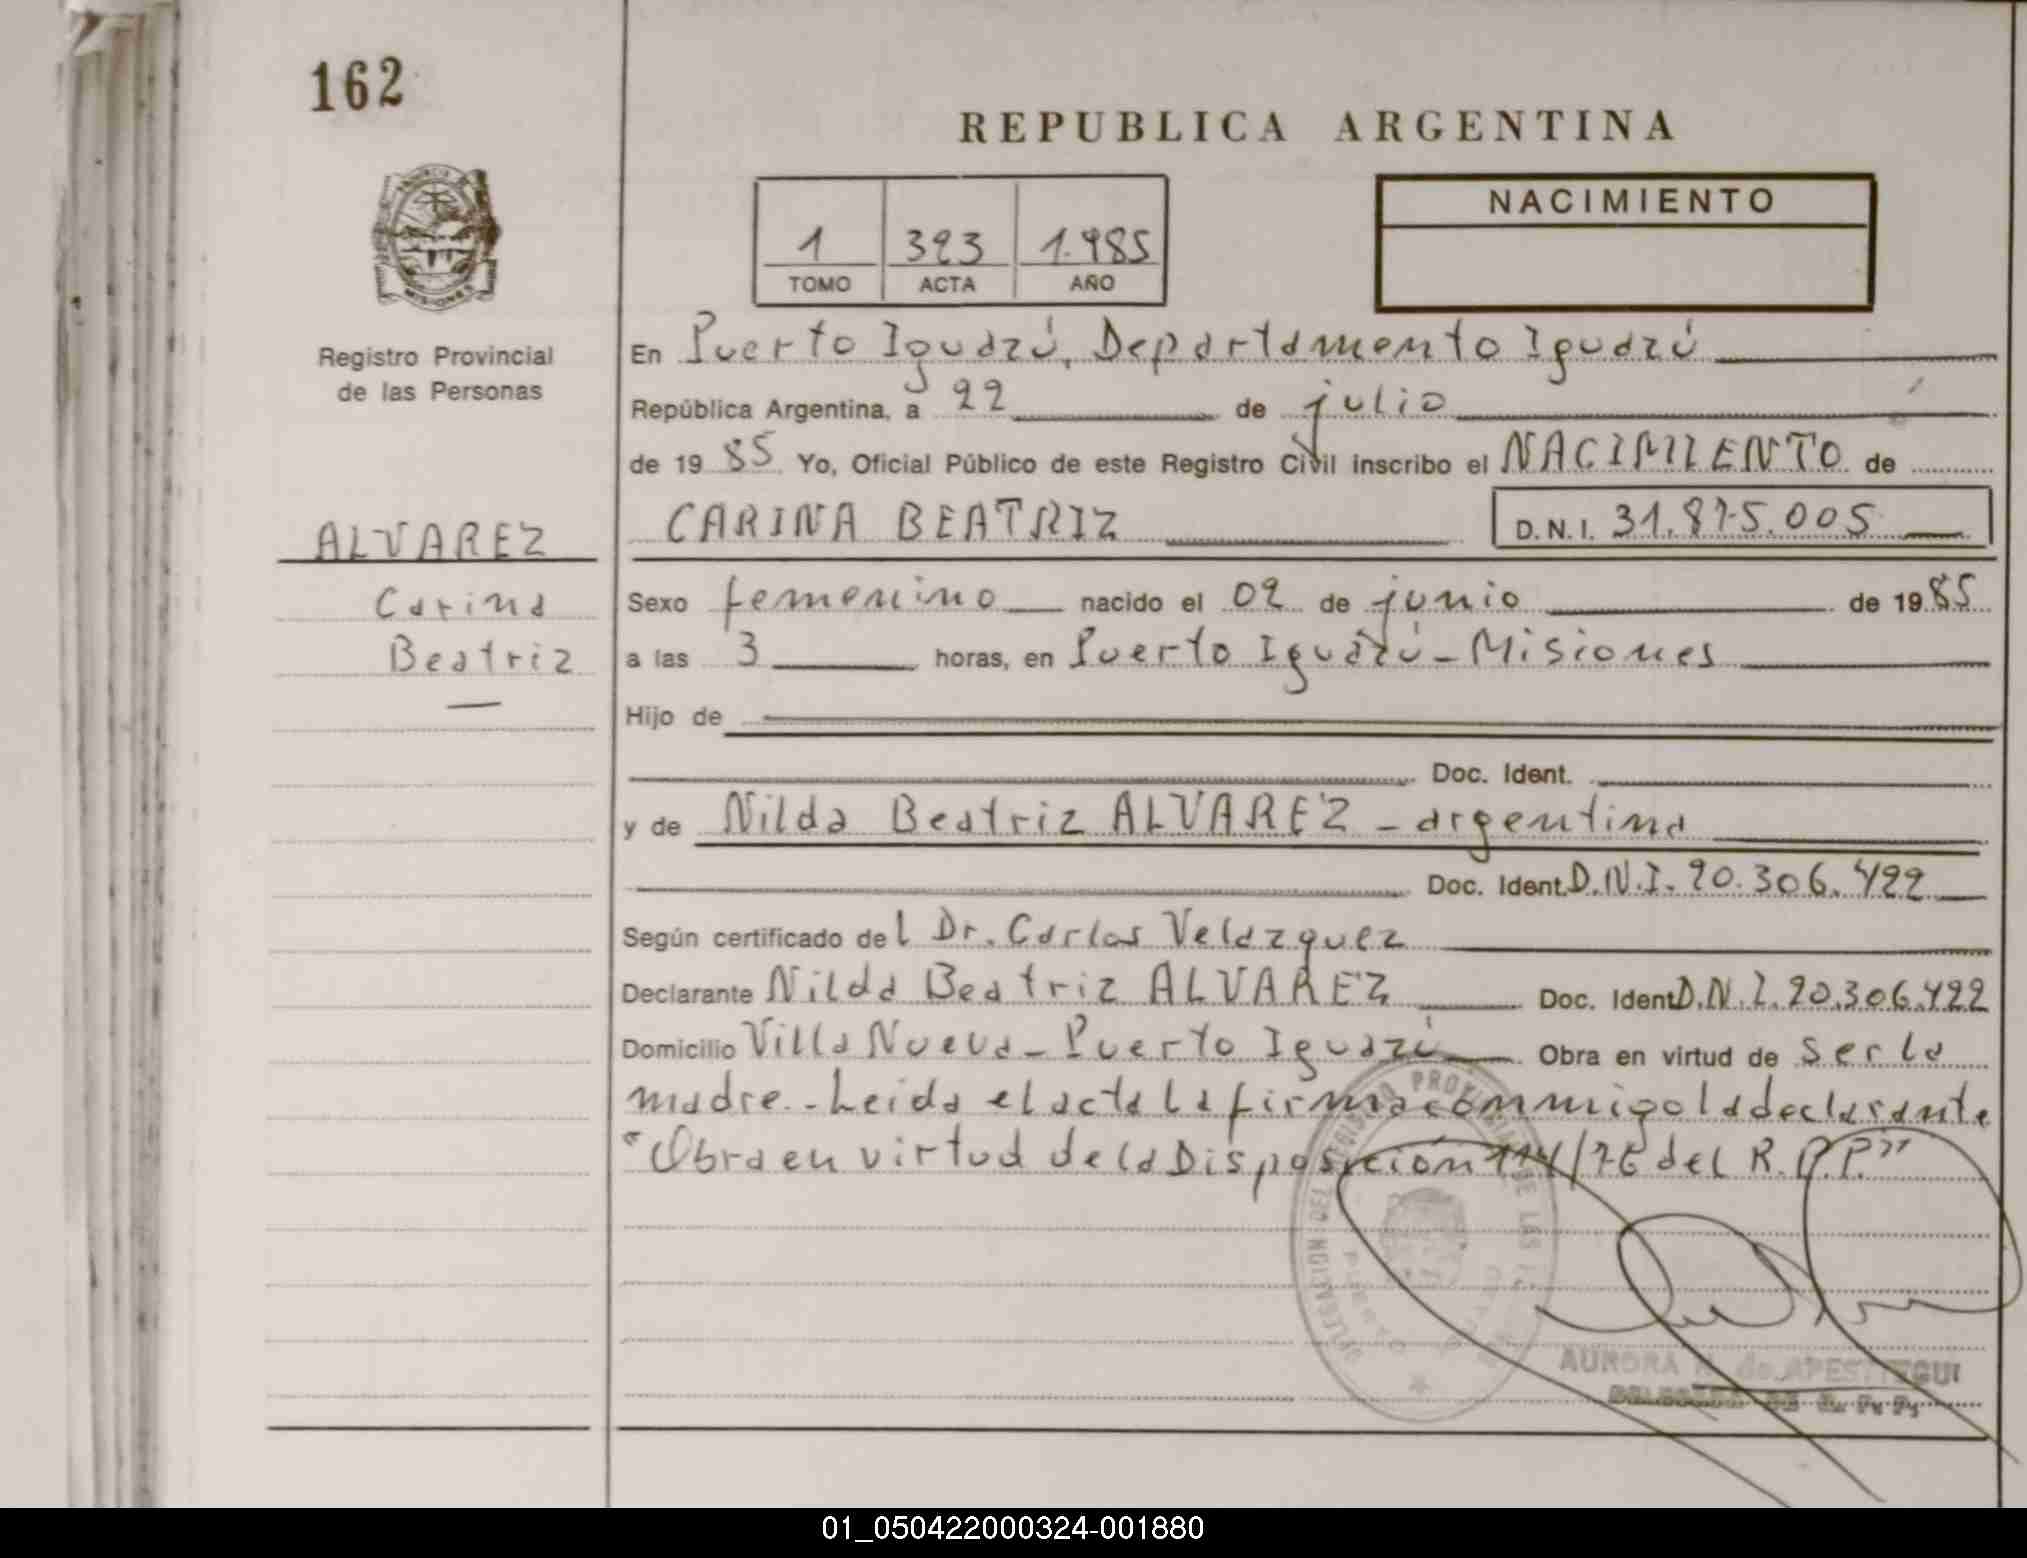 162
REPUBLICA ARGENTINA
NACIMIENTO
1 323 1.985
TOMO ACTA AÑO
MISIONES
Registro Provincial
de las Personas
En Puerto Iguazú, Departamento Iguazú
República Argentina, a 22 de julio
de 19 85 Yo, Oficial Público de este Registro Civil inscribo el NACIMIENTO de
ALVAREZ
Carina
Beatriz
CARINA BEATRIZ D.N.I. 31.875.005
Sexo femenino nacido el 02 de junio de 19 85
a las 3 horas, en Puerto Iguazú - Misiones
Hijo de
Doc. Ident.
y de Nilda Beatriz ALVAREZ - argentina
Doc. Ident. D.N.I. 20.306.422
Según certificado del Dr. Carlos Velazquez
Declarante Nilda Beatriz ALVAREZ Doc. Ident D.N.I. 20.306.422
Domicilio Villa Nueva - Puerto Iguazú Obra en virtud de ser la
madre.- Leida el acta la firma conmigo la declarante
"Obra en virtud de la Disposición 114/76 del R.P.P."
DELEGACION DEL REGISTRO PROVINCIAL DE LAS
AURORA de APESTEGUI
R. P. P.
01_050422000324-001880